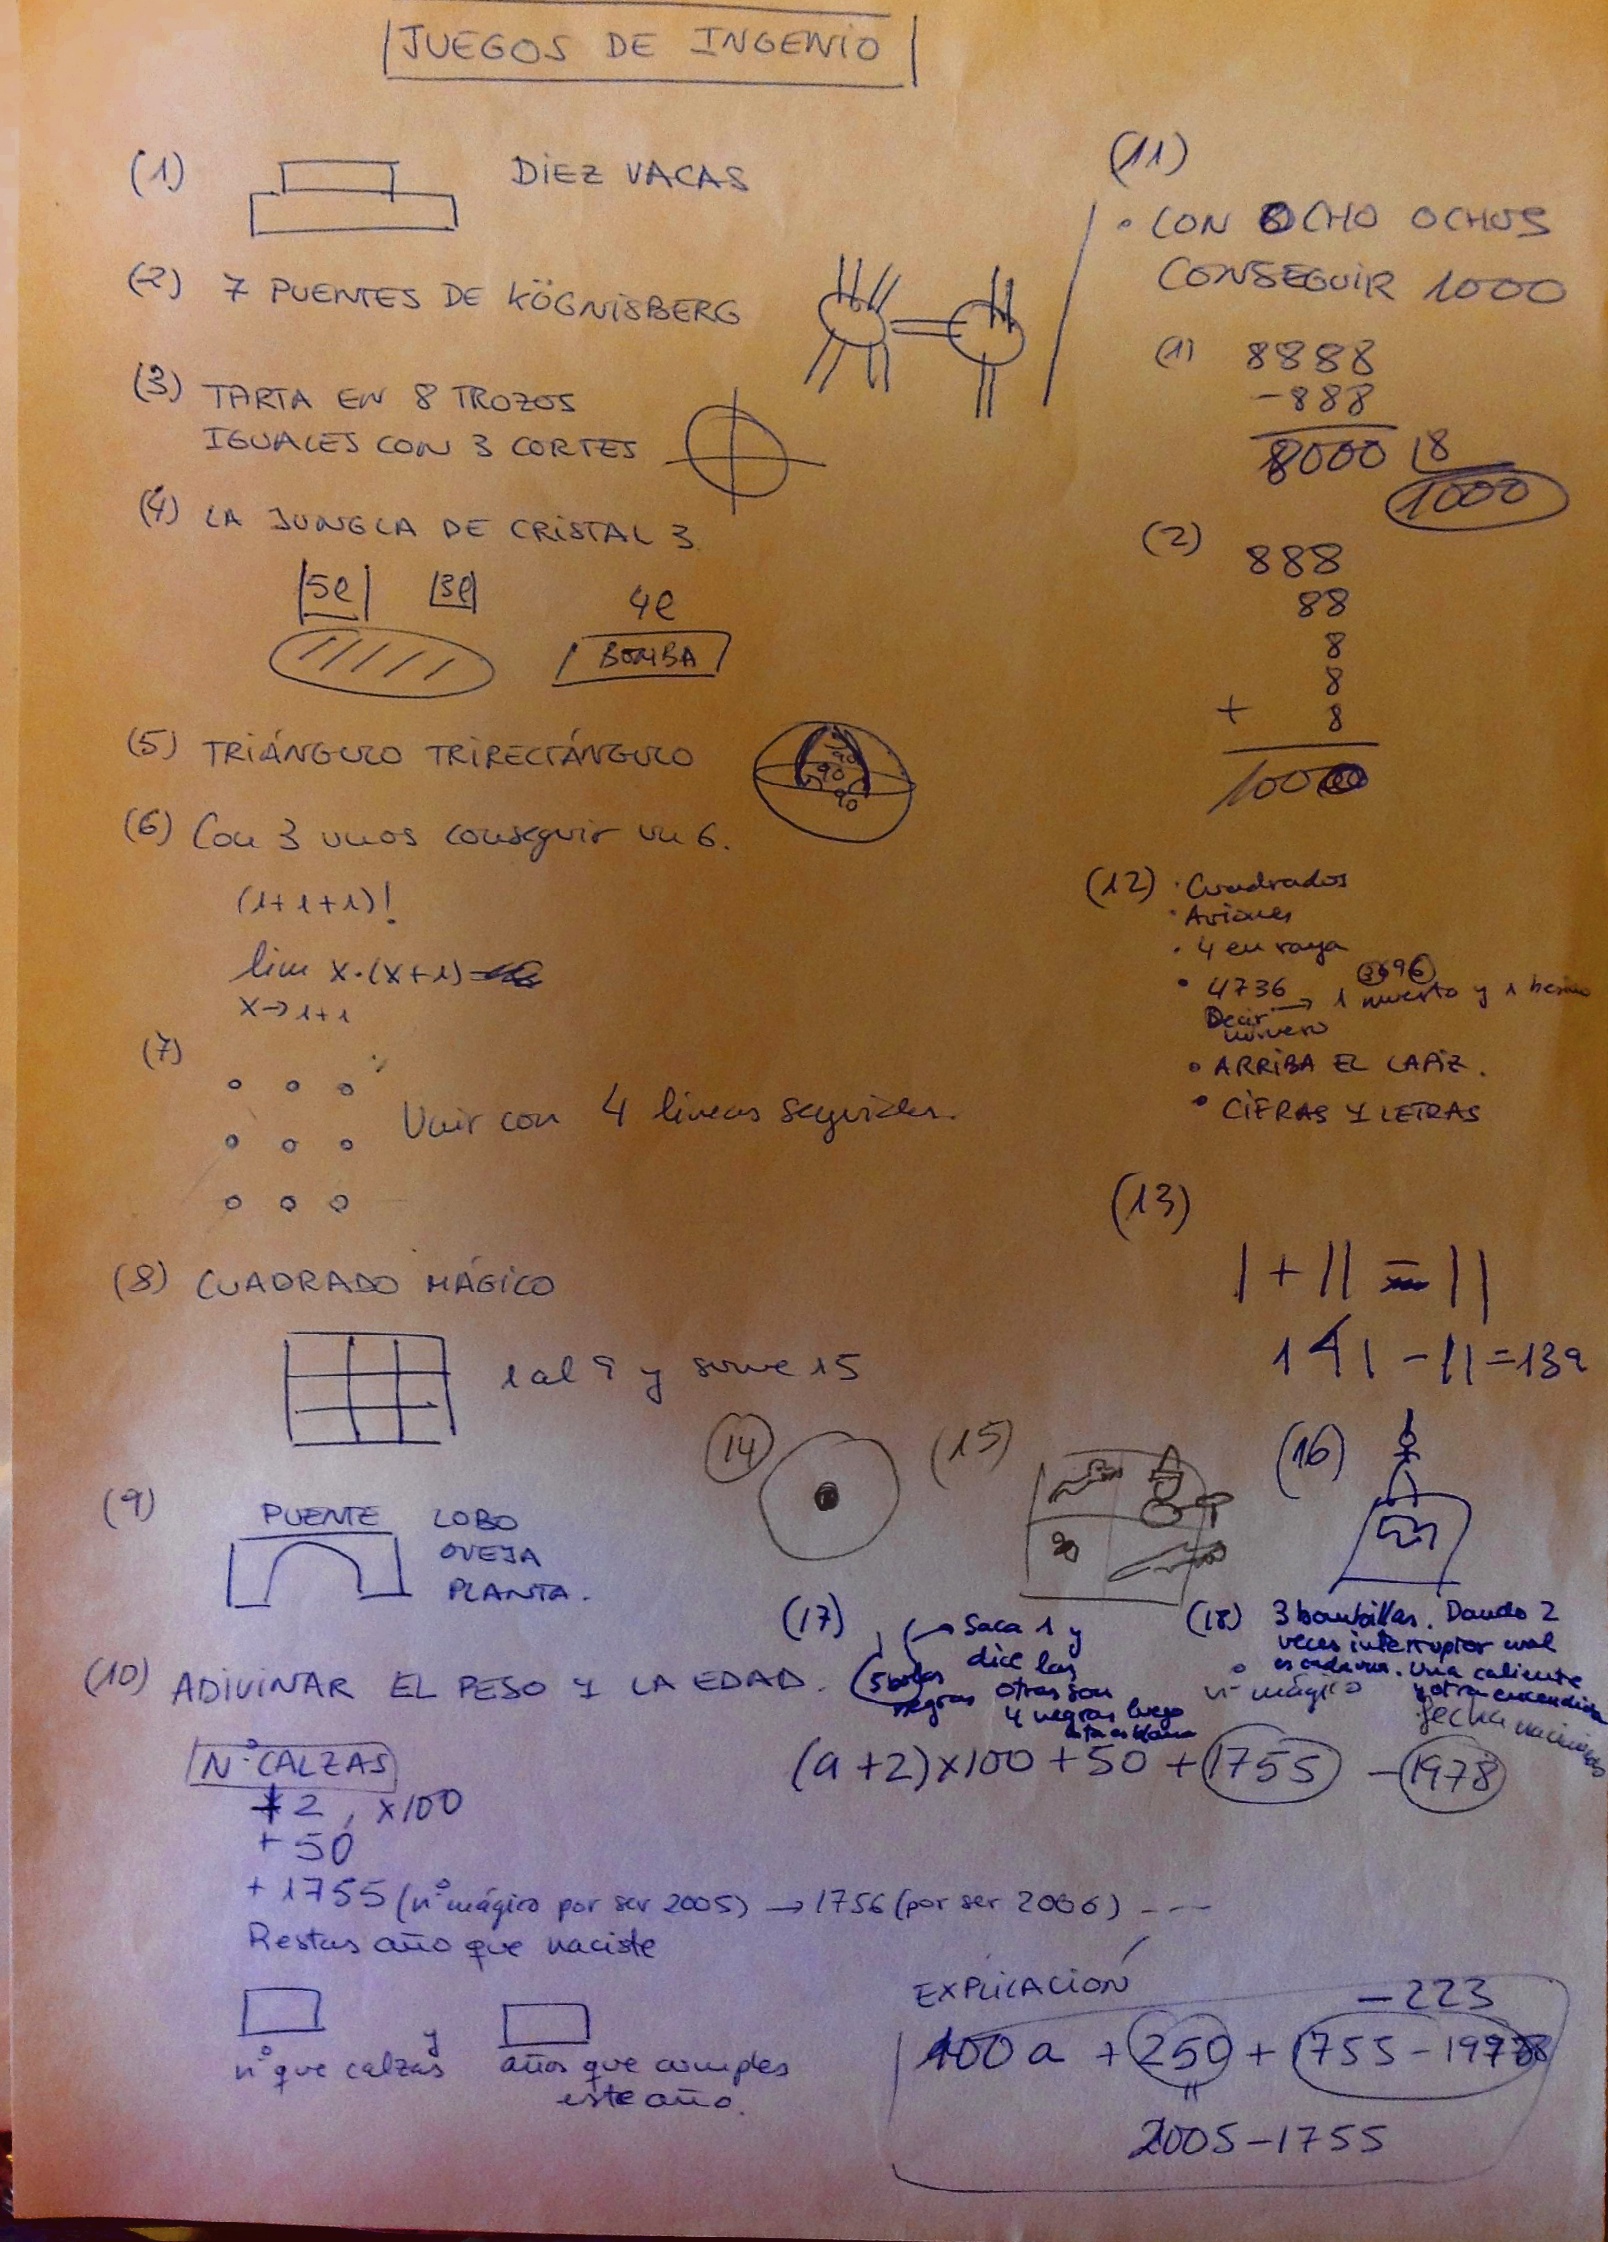 JUEGOS DE INGENIO
(1) DIEZ VACAS
(2) 7 PUENTES DE KÖGNISBERG
(3) TARTA EN 8 TROZOS
IGUALES CON 3 CORTES
(4) LA JUNGLA DE CRISTAL 3
5l 3l 4l
BOMBA
(5) TRIÁNGULO TRIRECTÁNGULO
90
90
90
(6) Con 3 unos conseguir un 6.
(1+1+1)!
lim x·(x+1)
x→1+1
(7)
Unir con 4 líneas seguidas.
(8) CUADRADO MÁGICO
1 al 9 y sume 15
(9)
PUENTE LOBO
OVEJA
PLANTA.
(10) ADIVINAR EL PESO Y LA EDAD.
Nº CALZAS
+2, x100
+50
+1755 (nº mágico por ser 2005) → 1756 (por ser 2006) ----
Restas año que naciste
y
nº que calzas años que cumples
este año.
(11)
• CON OCHO OCHOS
CONSEGUIR 1000
(1) 8888
-888
8000 8
1000
(2) 888
88
8
8
+ 8
1000
(12) · Cuadrados
· Aviones
· 4 en raya
• 4736 → 1 muerto y 1 herido
3696
Decir
número
• ARRIBA EL LAPIZ.
• CIFRAS Y LETRAS
(13)
1 + 11 = 11
141 - 11 = 130
(14)
(15)
(16)
(17) Saca 1 y
dice las
5 bolas otras son
negras 4 negras luego
esta es blanca
(18) 3 bombillas. Dando 2
veces interruptor cual
es cada una. Una caliente
y otra encendida
nº mágico
fecha nacimiento
(a+2)x100 + 50 + 1755 - 1978
EXPLICACIÓN
-223
100a + 250 + 1755 - 1978
"
2005-1755